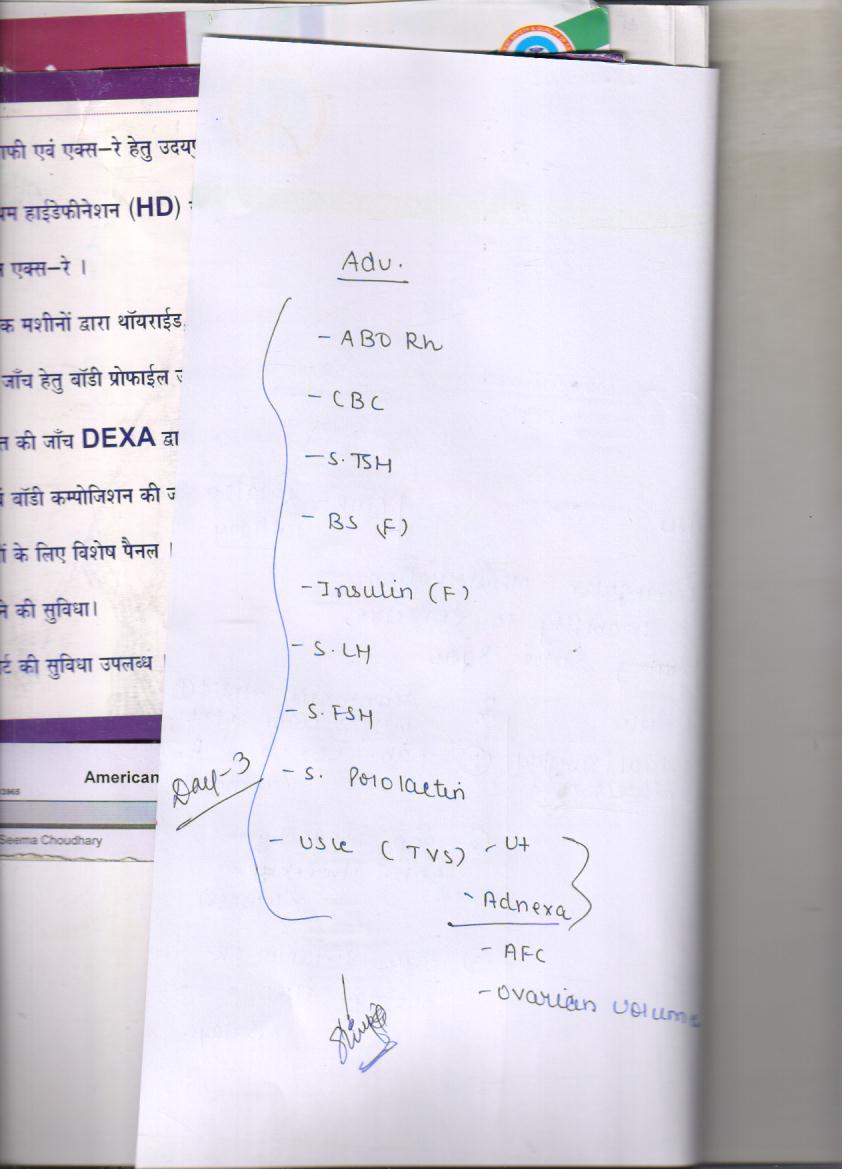 ाफी एवं एक्स–रे हेतु उदयप
म हाईडेफीनेशन (HD)
एक्स–रे ।
क मशीनों द्वारा थॉयराईड,
जाँच हेतु बॉडी प्रोफाईल
त की जाँच DEXA द्वा
बॉडी कम्पोजिशन की ज
ों के लिए विशेष पैनल ।
ने की सुविधा।
र्ट की सुविधा उपलब्ध
American
3965
Seema Choudhary
Adv.
- ABO Rh
- CBC
- S. TSH
- BS (F)
- Insulin (F)
- S. LH
- S. FSH
Day-3
- S. Prolactin
- USG (TVS) - Ut
- Adnexa
- AFC
- Ovarian volume